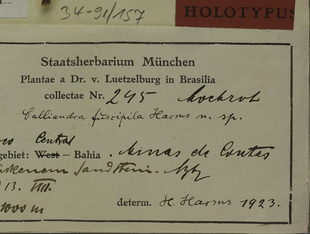 34-91/157
HOLOTYPUS
Staatsherbarium München
Plantae a Dr. v. Luetzelburg in Brasilia
collectae Nr. 245
Calliandra fuscipila Harms n. sp.
Central
gebiet: West - Bahia. Minas de Contas
13. VIII.
1000 m
determ. H Harms 1923.